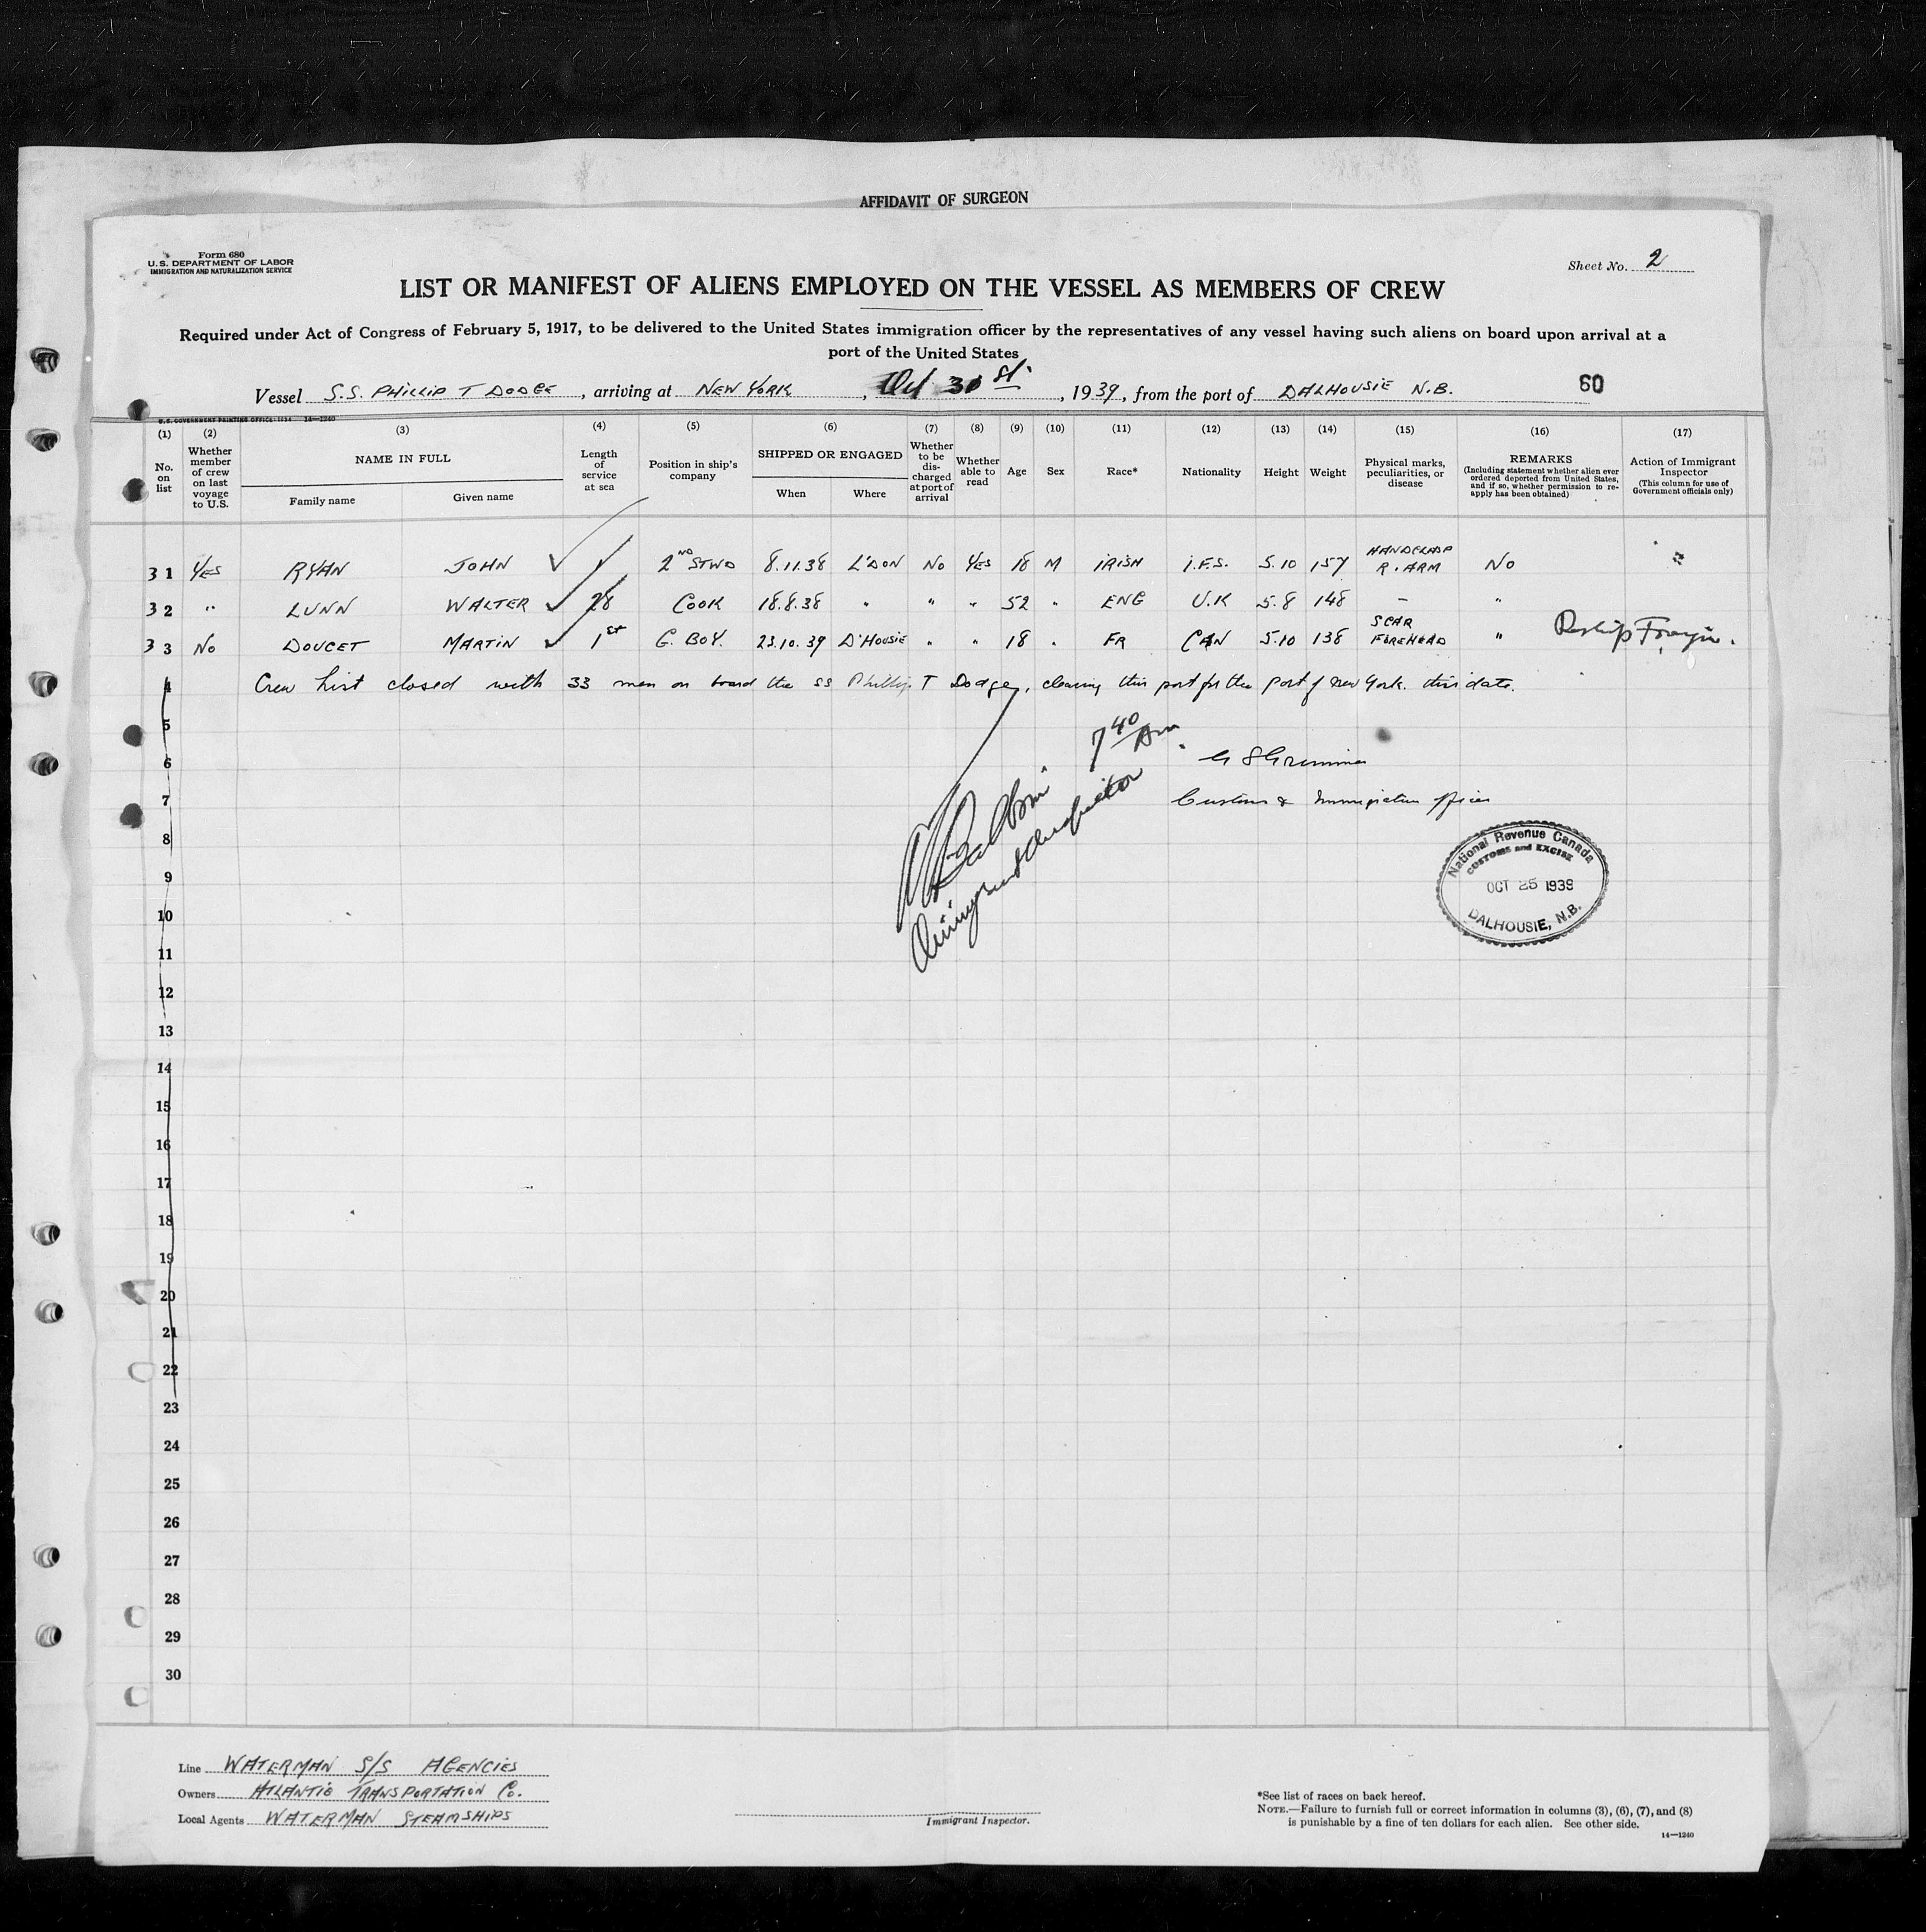 AFFIDAVIT OF SURGEON
Form 680
U. S. DEPARTMENT OF LABOR
IMMIGRATION AND NATURALIZATION SERVICE
Sheet No. 2
LIST OR MANIFEST OF ALIENS EMPLOYED ON THE VESSEL AS MEMBERS OF CREW
Required under Act of Congress of February 5, 1917, to be delivered to the United States immigration officer by the representatives of any vessel having such aliens on board upon arrival at a
port of the United States
Vessel S.S. PHILLIP T DODGE, arriving at NEW YORK, Oct 31 st, 1939, from the port of DALHOUSIE N.B. 60
U.S. GOVERNMENT PRINTING OFFICE: 1934 14—1240
(1) No. on list
(2) Whether member of crew on last voyage to U.S.
(3) NAME IN FULL Family name Given name
(4) Length of service at sea
(5) Position in ship's company
(6) SHIPPED OR ENGAGED When Where
(7) Whether to be discharged at port of arrival
(8) Whether able to read
(9) Age
(10) Sex
(11) Race*
(12) Nationality
(13) Height
(14) Weight
(15) Physical marks, peculiarities, or disease
(16) REMARKS (Including statement whether alien ever ordered deported from United States, and if so, whether permission to reapply has been obtained)
(17) Action of Immigrant Inspector (This column for use of Government officials only)
31 YES RYAN JOHN 1 2ND STWD 8.11.38 L'DON NO YES 18 M IRISH I.F.S. 5.10 157 HANDCLASP R. ARM NO "
32 " LUNN WALTER 28 COOK 18.8.38 " " " 52 " ENG U.K 5.8 148 – "
33 NO DOUCET MARTIN 1st G. BOY. 23.10.39 D'HOUSIE " " 18 " FR CAN 5.10 138 SCAR FOREHEAD " Reship Foreign.
4 Crew list closed with 33 men on board the SS Phillip T Dodge, clearing this port for the port of New York. this date.
5
7 40 Am
6
7 Customs & Immigration officer
Immigrant Inspector
8
National Revenue Canada
CUSTOMS and EXCISE
OCT 25 1939
DALHOUSIE, N.B.
9
10
11
12
13
14
15
16
17
18
19
20
21
22
23
24
25
26
27
28
29
30
Line WATERMAN S/S AGENCIES
Owners ATLANTIC TRANSPORTATION Co.
Local Agents WATERMAN STEAMSHIPS
Immigrant Inspector.
*See list of races on back hereof.
NOTE.—Failure to furnish full or correct information in columns (3), (6), (7), and (8)
is punishable by a fine of ten dollars for each alien. See other side.
14—1240